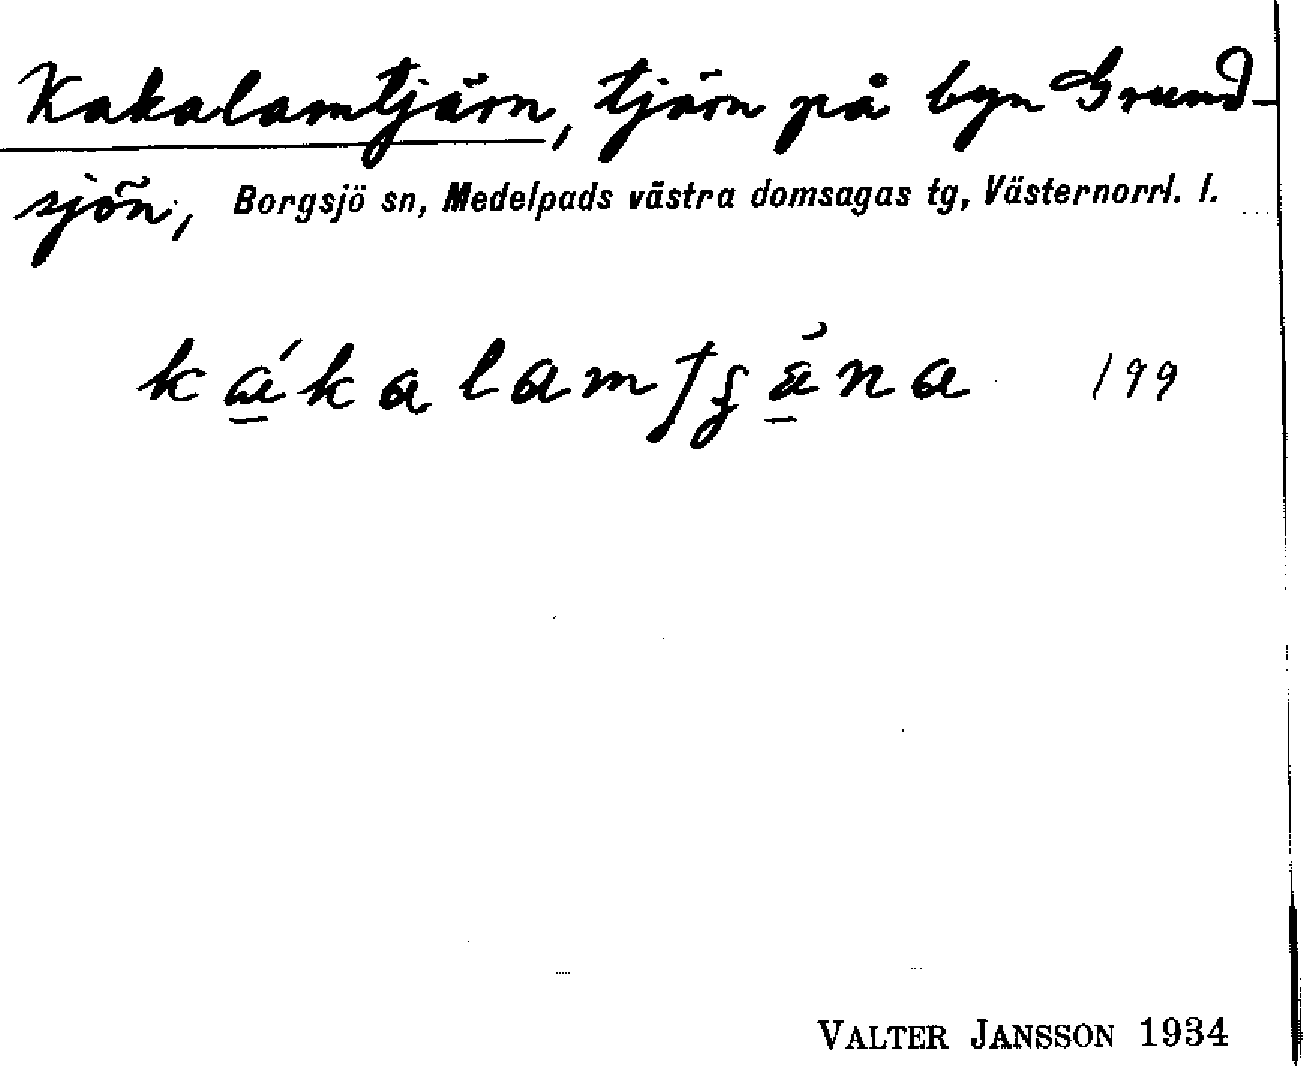 Kakalamtjärn, tjärn på byn Grund-
sjön, Borgsjö sn, Medelpads västra domsagas tg, Västernorrl. l.
199
VALTER JANSSON 1934